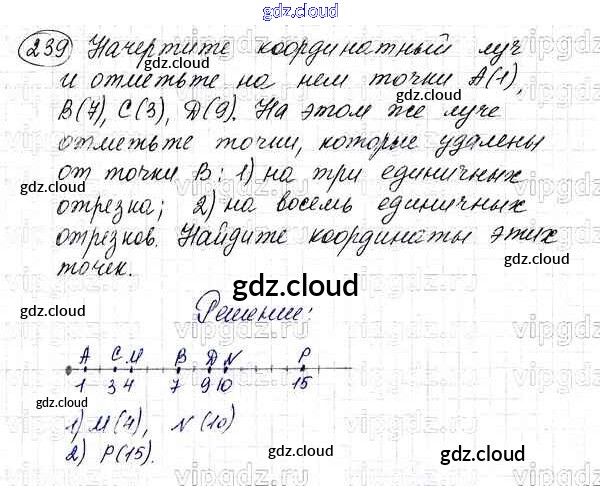 gdz.cloud
239 Начертите координатный луч
и отметьте на нем точки A(1),
B(7), C(3), D(9). На этом же луче
отметьте точки, которые удалены
от точки B: 1) на три единичных
отрезка; 2) на восемь единичных
отрезков. Найдите координаты этих
точек.
gdz.cloud
Решение:
A C M B D N P
1 3 4 7 9 10 15
1) M(4), N(10)
2) P(15).
gdz.cloud